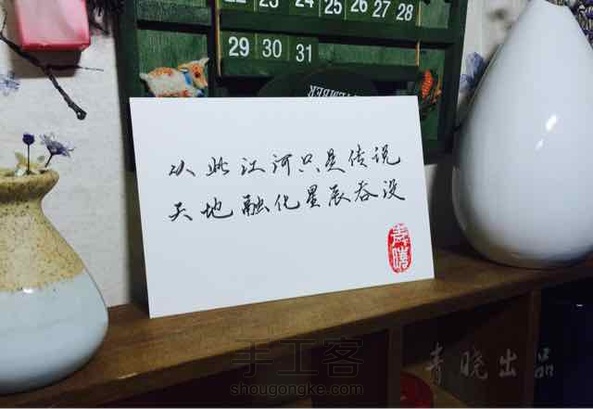 22 23 24 25 26 27 28
29 30 31
从此江河只是传说
天地融化星辰吞没
青晓出品
手工客
shougongke.com